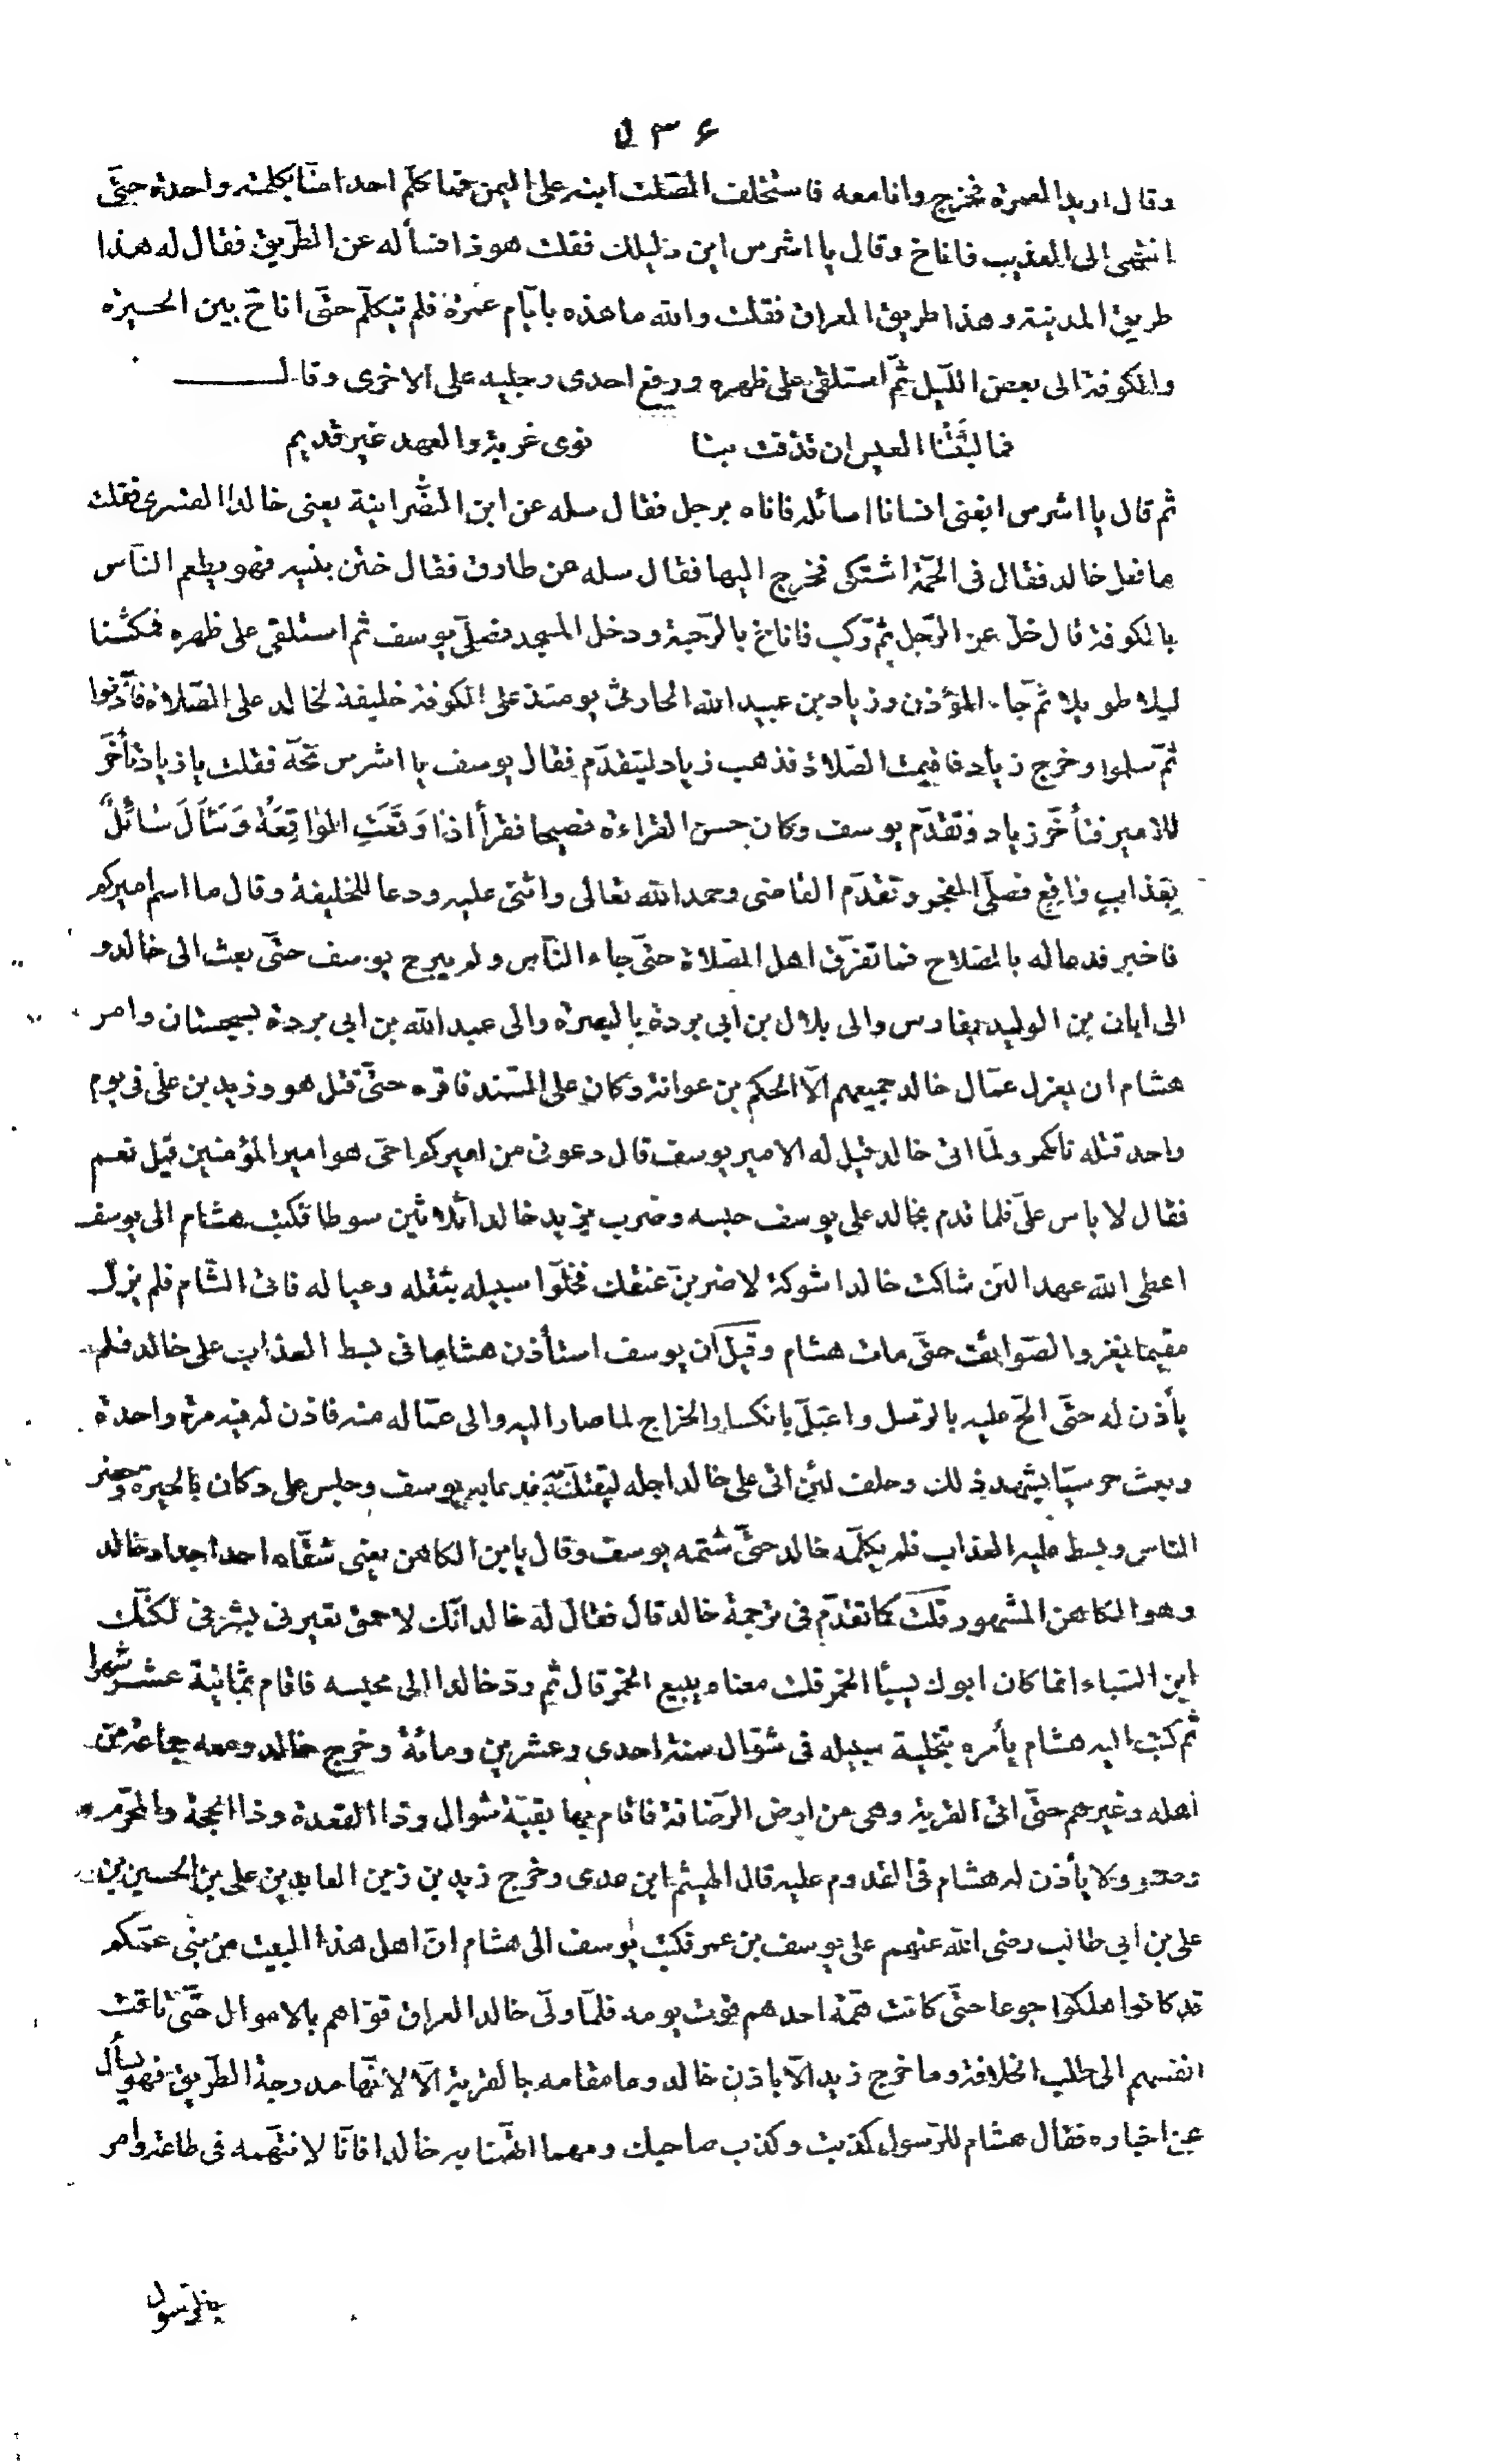 ٥٣٤
وقال اريد العمرة فخرج وانا معه فاستخلف الصلت ابنه على اليمن فما كلم احدا منا بكلمة واحدة حتى
انتهى الى العذيب فاناخ وقال يا اشرس اين دليلك فقلت هو ذا فسأله عن الطريق فقال له هذا
طريق المدينة وهذا طريق العراق فقلت والله ما هذه بايام عمرة فلم يتكلم حتى اناخ بين الحيرة
والكوفة الى بعض الليل ثم استلقى على ظهره ورفع احدى رجليه على الاخرى وقال
فما لبثتنا العيس ان قذفت بنا نوى غربة والعهد غير قديم
ثم قال يا اشرس ابغنى انسانا اسائله فاتاه برجل فقال سله عن ابن النصرانية يعنى خالدا القسرى فقلت
ما فعل خالد فقال فى الحمة اشتكى فخرج اليها فقال سله عن طارق فقال ختن بنيه فهو يطعم الناس
بالكوفة قال خل عن الرجل ثم ركب فاناخ بالرحبة ودخل المسجد فصلى يوسف ثم استلقى على ظهره فمكثنا
ليلا طويلا ثم جاء المؤذن وزياد بن عبيد الله الحارثى يومئذ على الكوفة خليفة لخالد على الصلاة فآذنوا
ثم سلموا وخرج زياد فاقيمت الصلاة فذهب زياد ليتقدم فقال يوسف يا اشرس نحه فقلت يا زياد تأخر
للامير فتأخر زياد وتقدم يوسف وكان حسن القراءة فصيحا فقرأ اذا وَقَعَتِ الْوَاقِعَةُ وَسَأَلَ سَائِلٌ
بِعَذَابٍ وَاقِعٍ فصلى الفجر وتقدم القاضى وحمد الله تعالى واثنى عليه ودعا للخليفة وقال ما اسم اميركم
فاخبر فدعا له بالصلاح فما تفرق اهل الصلاة حتى جاء الناس ولم يبرح يوسف حتى بعث الى خالد و
الى ابان بن الوليد بفارس والى بلال بن ابى بردة بالبصرة والى عبد الله بن ابى بردة بسجستان وامر
هشام ان يعزل عمال خالد جميعهم الا الحكم بن عوانة وكان على السند فاقره حتى قتل هو وزيد بن على فى يوم
واحد قتله ناكهر ولما اتى خالد قيل له الامير يوسف قال دعونى من اميركم احى هو امير المؤمنين قيل نعم
فقال لا باس على فلما قدم بخالد على يوسف حبسه وضرب يزيد خالدا ثلاثين سوطا فكتب هشام الى يوسف
اعطى الله عهدا لئن شاكت خالدا شوكة لاضربن عنقك فخلوا سبيله بثقله وعياله فاتى الشام فلم يزل
مقيما يغزو الصوائف حتى مات هشام وقيل ان يوسف استأذن هشاما فى بسط العذاب على خالد فلم
يأذن له حتى الح عليه بالرسل واعتل بانكسار الخراج لما صار اليه والى عماله منه فاذن له فيه مرة واحدة
وبعث حرسيا يشهد ذلك وحلف لئن اتى على خالد اجله ليقتلنه به فدعا به يوسف وجلس على دكان بالحيرة وحضر
الناس وبسط عليه العذاب فلم يكلمه خالد حتى شتمه يوسف وقال يا بن الكاهن يعنى شقاه احد اجداد خالد
وهو الكاهن المشهور قلت كما تقدم فى ترجمة خالد قال فقال له خالد انك لاحمق تعيرنى بشرفى لكنك
ابن السباء انما كان ابوك يسبأ الخمر قلت معناه يبيع الخمر قال ثم رد خالدا الى محبسه فاقام ثمانية عشر شهرا
ثم كتب اليه هشام يأمره بتخلية سبيله فى شوال سنة احدى وعشرين ومائة وخرج خالد ومعه جماعة من
اهله وغيرهم حتى اتى القرية وهى من ارض الرصافة فاقام بها بقية شوال وذا القعدة وذا الحجة والمحرم
وصفر ولا يأذن له هشام فى القدوم عليه قال الهيثم ابن عدى وخرج زيد بن زين العابدين على بن الحسين بن
على بن ابى طالب رضى الله عنهم على يوسف بن عمر فكتب يوسف الى هشام ان اهل هذا البيت من بنى عمكم
قد كانوا هلكوا جوعا حتى كانت همة احدهم قوت يومه فلما ولى خالد العراق قواهم بالاموال حتى تاقت
انفسهم الى طلب الخلافة وما خرج زيد الا باذن خالد وما مقامه بالقرية الا لانها مدرجة الطريق فهو يسأل
عن اخباره فقال هشام للرسول كذبت وكذب صاحبك ومهما اتهمنا به خالدا فانا لا نتهمه فى طاعة وامر